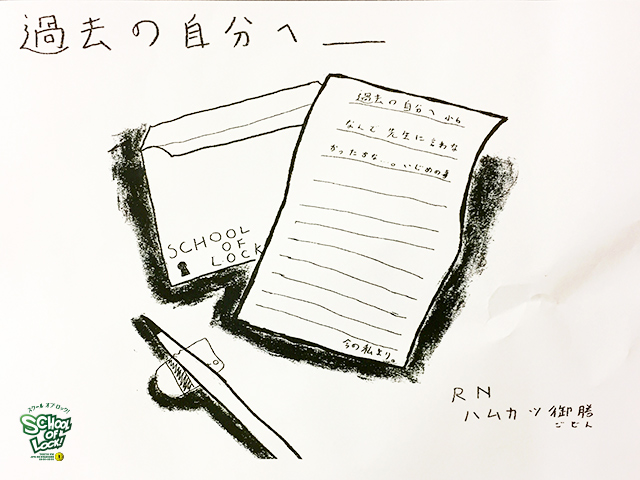 過去の自分へ
過去の自分へ 小6
なんで 先生に言わな
かったまな...。いじめの事
今の私より。
SCHOOL
OF
LOCK
RN
ハムカツ御膳
ごぜん
スクール オブ ロック!
SCHOOL
OF
LOCK!